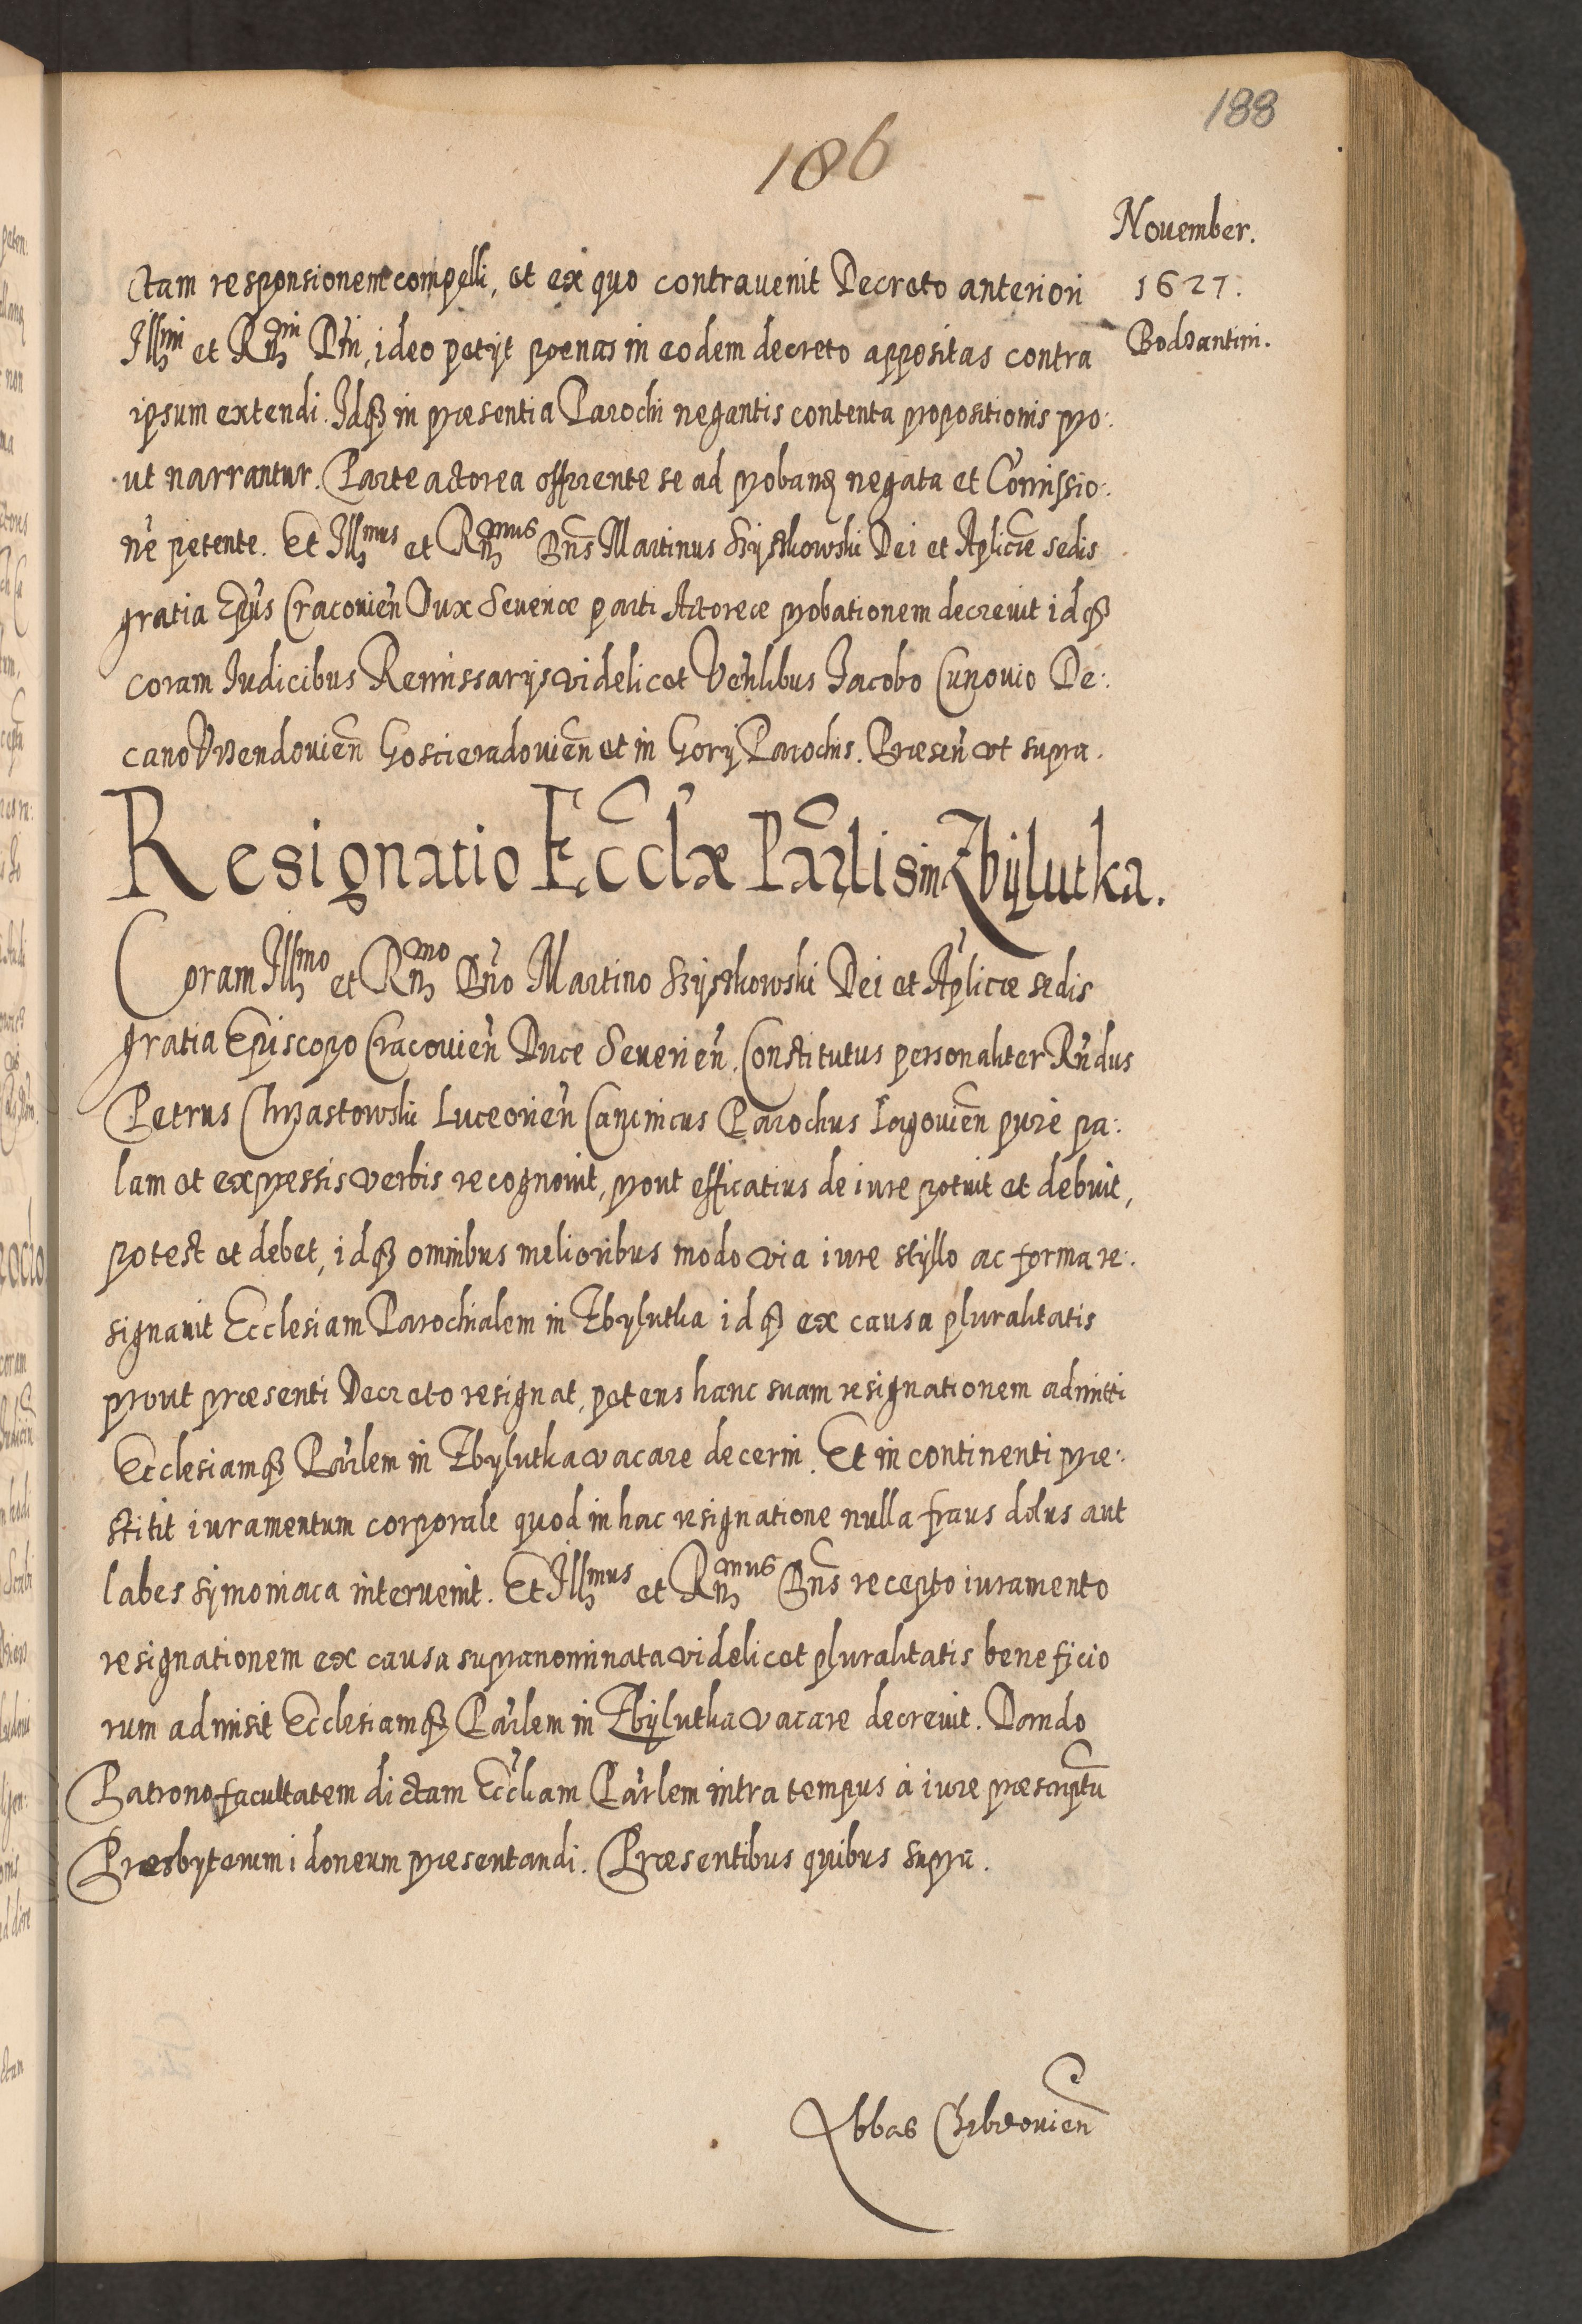 188
186
November.
1627.
Bodzantini.
ctam responsionem compelli, et ex quo contrauenit Decreto anteriori
Illmi et Rñmi Dñi, ideo petijt poenas in eodem decreto appositas contra
ipsum extendi. Idq3 in præsentia Parochi negantis contenta propositionis pro:
ut narrantur. Parte actorea offerente se ad proband negata et Com̃issio:
nẽ petente. Et Illmus et Rñmus Dñs Martinus Szyszkowski Dei et Aplicæ sedis
gratia Epũs Cracouieñ Dux Seueriæ parti Actoreæ probationem decreuit idq3
coram Iudicibus Remissarijs videlicet Veñlibus Jacobo Cunouio De:
cano Vrzendouieñ Gosczieradouieñ et in Gory Parochis. Præseñ vt supra.
Resignatio Eccłæ Pãrlis in Zbylutka.
Coram Illmo et Rñmo Dño Martino Szyszkowski Dei et Aplicæ sedis
gratia Episcopo Cracouieñ Duce Seuerieñ. Constitutus personaliter Rñdus
Petrus Chrząstowski Luceorieñ Canonicus Parochus Łagouieñ pure pa:
lam et expressis verbis recognouit, prout efficatius de iure potuit et debuit,
potest et debet, idq3 omnibus melioribus modo via iure styllo ac forma re:
signauit Ecclesiam Parochialem in Zbylutka idq3 ex causa pluralitatis
prout præsenti Decreto resignat, petens hanc suam resignationem admitti
Ecclesiamq3 Pãrlem in Zbylutka vacare decerni. Et in continenti præ:
stitit iuramentum corporale quod in hac resignatione nulla fraus dolus aut
labes symoniaca interuenit. Et Illmus et Rñmus Dñs recepto iuramento
resignationem ex causa supranominata videlicet pluralitatis beneficio
rum admisit Ecclesiamq3 Pãrlem in Zbylutka vacare decreuit. Dando
Patrono facultatem dictam Eccliam Pãrlem intra tempus à iure præscriptũ
Præsbyterum idoneum præsentandi. Præsentibus quibus supra.
Abbas Hebdouieñ